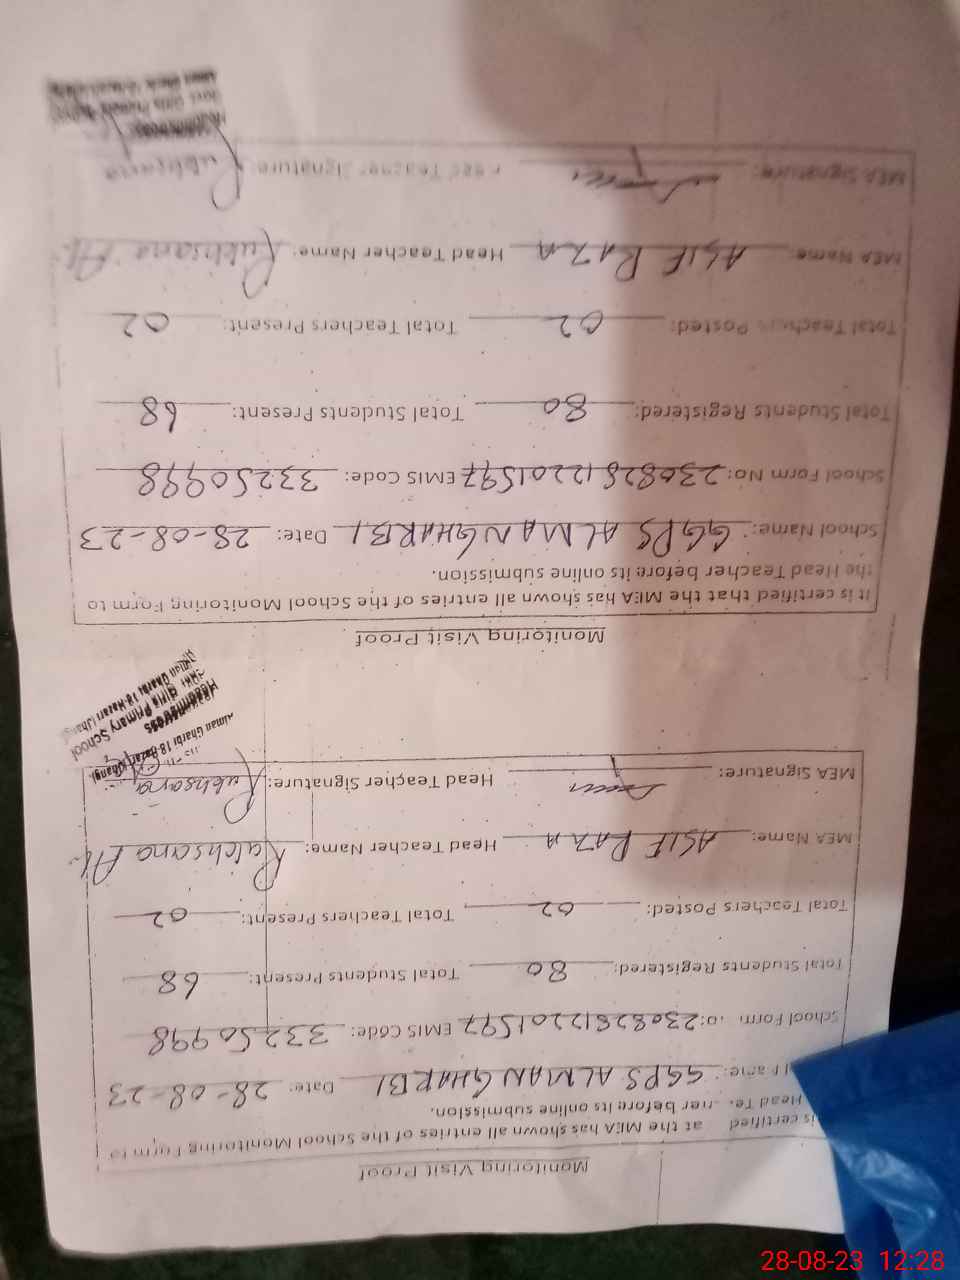 Monitoring Visit Proof
is certified at the MEA has shown all entries of the School Monitoring Form to
Head Te. her before its online submission.
ame: GGPS ALMAN GHARBI Date: 28-08-23
School Form o: 23082812201597 EMIS Code: 33250998
Total Students Registered: 80 Total Students Present: 68
Total Teachers Posted: 02 Total Teachers Present: 02
MEA Name: ASIF RAZA Head Teacher Name: Rukhsana At.
MEA Signature: Head Teacher Signature: Rukhsana
Alman Gharbi 18-Hazari (Jhang).
Headmistress
Govt. Girls Primary School
Alman Gharbi 18-Hazari (Jhang)
Monitoring Visit Proof
It is certified that the MEA has shown all entries of the School Monitoring Form to
the Head Teacher before its online submission.
School Name: GGPS ALMAN GHARBI Date: 28-08-23
School Form No: 23082812201597 EMIS Code: 33250998
Total Students Registered: 80 Total Students Present: 68
Total Teachers Posted: 02 Total Teachers Present: 02
MEA Name: ASIF RAZA Head Teacher Name: Rukhsana At.
MEA Signature: Head Teacher Signature: Rukhsana
28-08-23 12:28